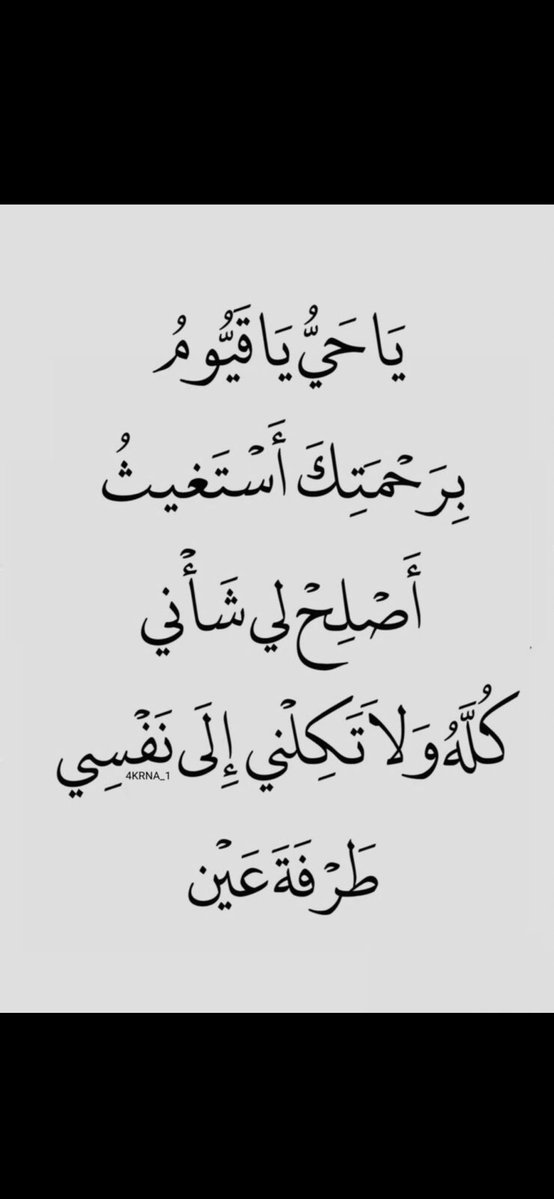 يَا حَيُّ يَا قَيُّومُ
بِرَحْمَتِكَ أَسْتَغيثُ
أَصْلِحْ لي شَأْني
كُلَّهُ وَلاَ تَكِلْني إِلَى نَفْسِي
4KRNA_1
طَرْفَةَ عَيْن